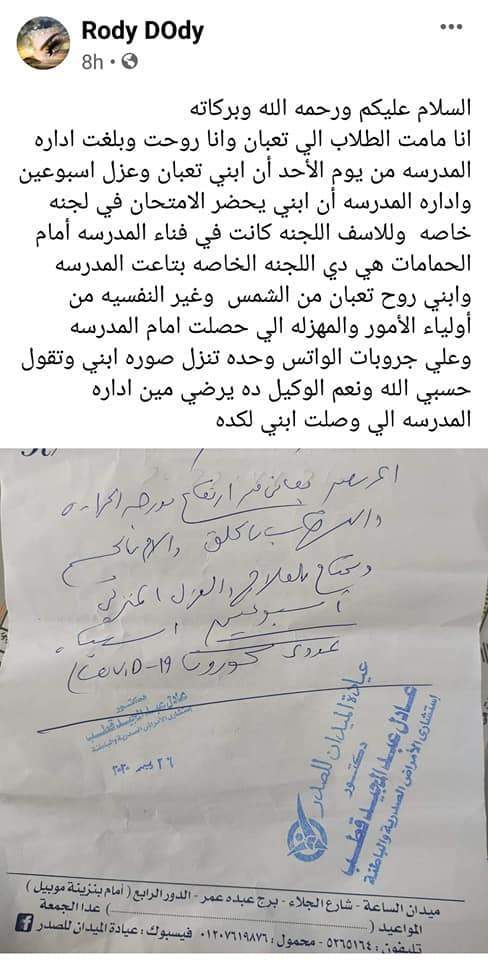 Rody DOdy
8h
السلام عليكم ورحمه الله وبركاته
انا مامت الطلاب الي تعبان وانا روحت وبلغت اداره
المدرسه من يوم الأحد أن ابني تعبان وعزل اسبوعين
واداره المدرسه أن ابني يحضر الامتحان في لجنه
خاصه وللاسف اللجنه كانت في فناء المدرسه أمام
الحمامات هي دي اللجنه الخاصه بتاعت المدرسه
وابني روح تعبان من الشمس وغير النفسيه من
أولياء الأمور والمهزله الي حصلت امام المدرسه
وعلي جروبات الواتس وحده تنزل صوره ابني وتقول
حسبي الله ونعم الوكيل ده يرضي مين اداره
المدرسه الي وصلت ابني لكده
ارتفاع درجه الحراره
والتهاب بالحلق والام بالجسم
ويحتاج للعلاج والعزل المنزلي
أسبوعين اشتباه
عدوى كورونا
دكتور
عادل عبد المجيد قطب
إستشارى الأمراض الصدرية والباطنة
٢٦ ديسمبر ٢٠٢٠
عيادة الميدان للصدر
دكتور
عادل عبد المجيد قطب
إستشارى الأمراض الصدرية والباطنة
ميدان الساعة - شارع الجلاء - برج عبده عمر - الدور الرابع (أمام بنزينة موبيل)
المواعيد ( ) عدا الجمعة
تليفون : ٥٢٦٥١٦٤ - محمول : ٠١٢٠٧٦١٩٨٧٦ فيسبوك : عيادة الميدان للصدر